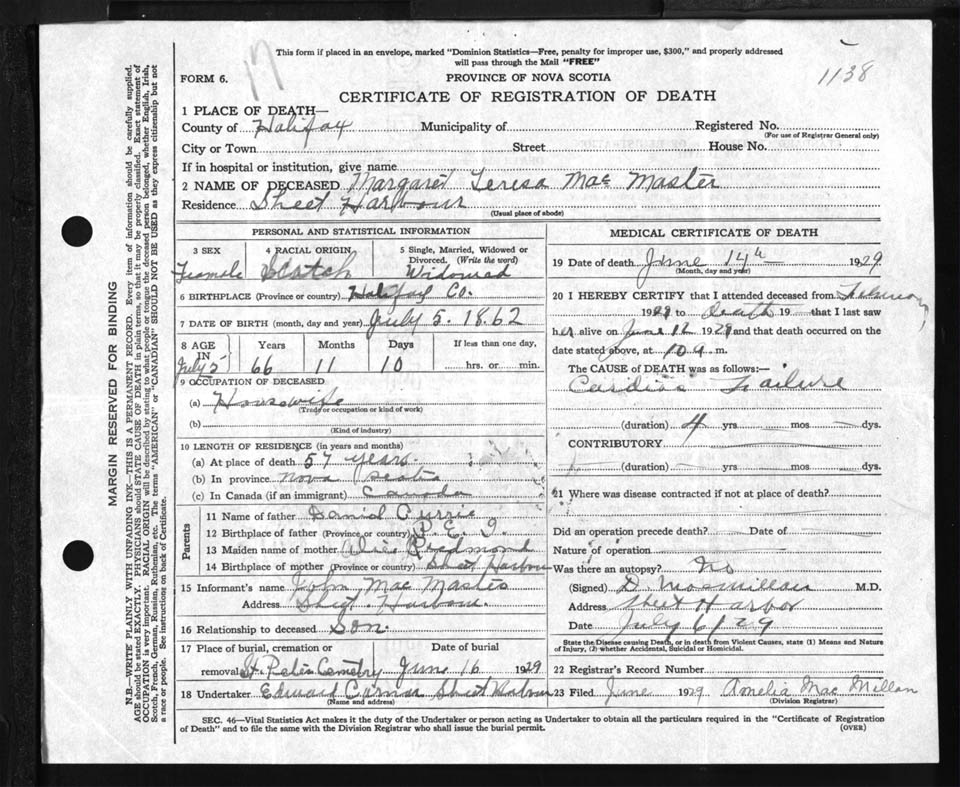 This form if placed in an envelope, marked "Dominion Statistics—Free, penalty for improper use, $300," and properly addressed
will pass through the Mail "FREE"
17
1138
FORM 6.
PROVINCE OF NOVA SCOTIA
CERTIFICATE OF REGISTRATION OF DEATH
1 PLACE OF DEATH—
County of Halifax Municipality of Registered No.
(For use of Registrar General only)
City or Town Street House No.
If in hospital or institution, give name
2 NAME OF DECEASED Margaret Teresa Mac Master
Residence Sheet Harbour
(Usual place of abode)
PERSONAL AND STATISTICAL INFORMATION
3 SEX 4 RACIAL ORIGIN 5 Single, Married, Widowed or
Divorced. (Write the word)
Female Scotch Widowed
6 BIRTHPLACE (Province or country) Halifax Co.
7 DATE OF BIRTH (month, day and year) July 5. 1862
8 AGE IN Years Months Days If less than one day,
July 5 66 11 10 hrs. or min.
9 OCCUPATION OF DECEASED
(a) Housewife
(Trade or occupation or kind of work)
(b)
(Kind of industry)
10 LENGTH OF RESIDENCE (in years and months)
(a) At place of death 57 years.
(b) In province Nova Scotia
(c) In Canada (if an immigrant) Canada
Parents
11 Name of father Daniel Currie
12 Birthplace of father (Province or country) P. E. I.
13 Maiden name of mother Redmond
14 Birthplace of mother (Province or country) Sheet Harbour
15 Informant's name John Mac Master
Address Sheet Harbour.
16 Relationship to deceased Son.
17 Place of burial, cremation or Date of burial
removal St Peter Cemetry June 16 1929
18 Undertaker Edward Sheet Harbour
(Name and address)
MEDICAL CERTIFICATE OF DEATH
19 Date of death June 14th 1929
(Month, day and year)
20 I HEREBY CERTIFY that I attended deceased from February
1929 to death 19 that I last saw
her alive on June 12 1929 and that death occurred on
date stated above, at 10 a m.
The CAUSE OF DEATH was as follows:—
Cardiac Failure
(duration) 4 yrs mos dys.
CONTRIBUTORY
(duration) yrs mos dys.
21 Where was disease contracted if not at place of death?
Did an operation precede death? Date of
Nature of operation
Was there an autopsy? No
(Signed) D. Macmillan M.D.
Address Sheet Harbor
Date July 6/29
State the Disease causing Death, or in death from Violent Causes, state (1) Means and Nature
of Injury, (2) whether Accidental, Suicidal or Homicidal.
22 Registrar's Record Number
23 Filed June 1929 Amelia Mac Millan
(Division Registrar)
SEC. 46—Vital Statistics Act makes it the duty of the Undertaker or person acting as Undertaker to obtain all the particulars required in the "Certificate of Registration
of Death" and to file the same with the Division Registrar who shall issue the burial permit.
(OVER)
MARGIN RESERVED FOR BINDING
N.B.—WRITE PLAINLY WITH UNFADING INK—THIS IS A PERMANENT RECORD. Every item of information should be carefully supplied.
AGE should be stated EXACTLY. PHYSICIANS should STATE CAUSE OF DEATH in plain terms, so that it may be properly classified. Exact statement of
OCCUPATION is very important. RACIAL ORIGIN will be described by stating to what people or tongue the deceased person belonged, whether English, Irish,
Scotch, French, German, Russian, Ruthenian, etc. The terms "AMERICAN" or "CANADIAN" SHOULD NOT BE USED as they express citizenship but not
a race or people. See instructions on back of Certificate.